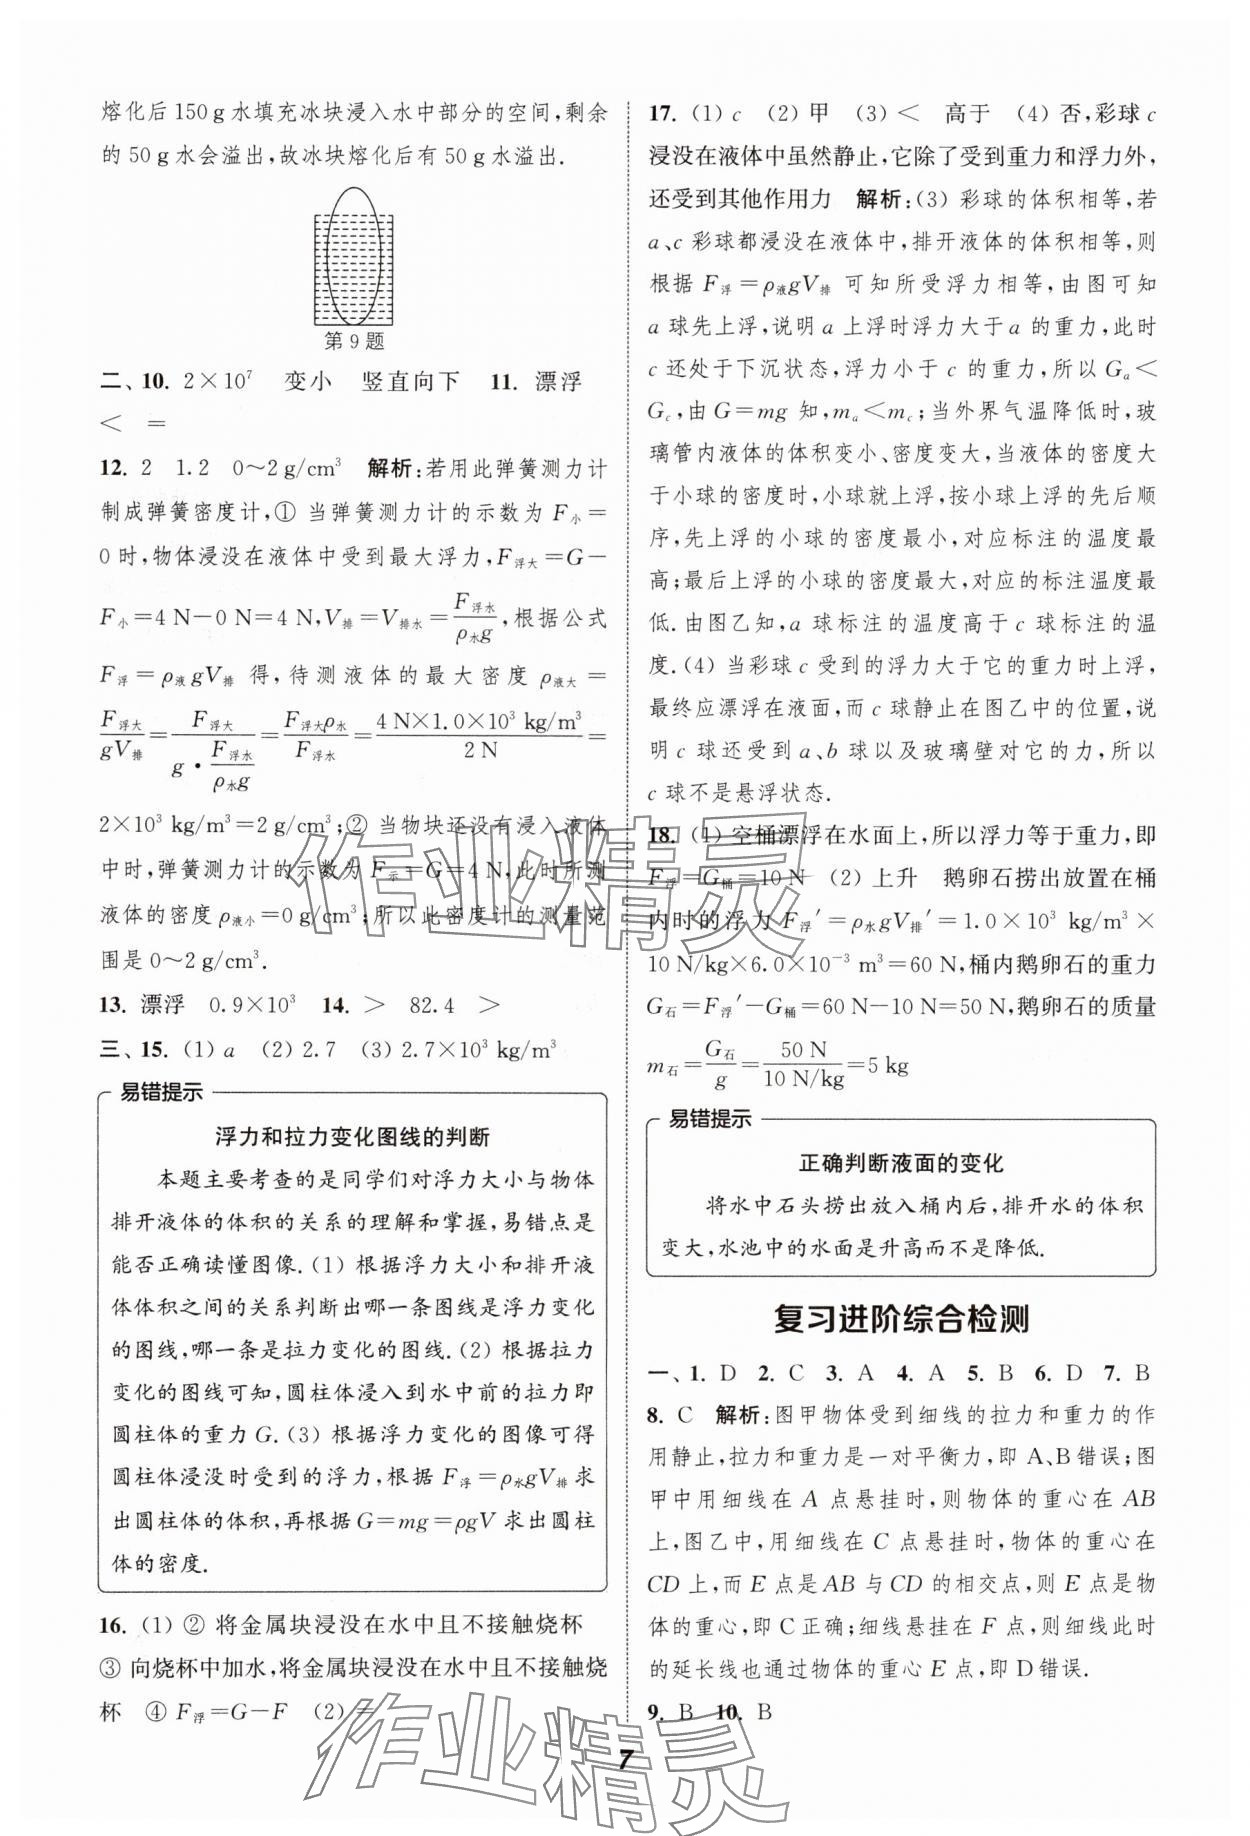 熔化后150g水填充冰块浸入水中部分的空间,剩余
的50g水会溢出,故冰块熔化后有50g水溢出.
第9题
二、10. 2×10⁷ 变小 竖直向下 11. 漂浮
< =
12. 2 1.2 0～2g/cm³ 解析:若用此弹簧测力计
制成弹簧密度计,① 当弹簧测力计的示数为F小=
0时,物体浸没在液体中受到最大浮力,F浮大=G-
F小=4 N-0 N=4 N,V排=V排水=F浮水/ρ水g,根据公式
F浮=ρ液gV排 得,待测液体的最大密度 ρ液大=
F浮大/gV排=F浮大/(g·F浮水/ρ水g)=F浮大ρ水/F浮水=4 N×1.0×10³ kg/m³/2 N=
2×10³ kg/m³=2 g/cm³;② 当物块还没有浸入液体
中时,弹簧测力计的示数为F示=G=4 N,此时所测
液体的密度ρ液小=0 g/cm³;所以此密度计的测量范
围是0～2 g/cm³.
13. 漂浮 0.9×10³ 14. > 82.4 >
三、15. (1) a (2) 2.7 (3) 2.7×10³ kg/m³
易错提示
浮力和拉力变化图线的判断
本题主要考查的是同学们对浮力大小与物体
排开液体的体积的关系的理解和掌握,易错点是
能否正确读懂图像.(1) 根据浮力大小和排开液
体体积之间的关系判断出哪一条图线是浮力变化
的图线,哪一条是拉力变化的图线.(2) 根据拉力
变化的图线可知,圆柱体浸入到水中前的拉力即
圆柱体的重力G.(3) 根据浮力变化的图像可得
圆柱体浸没时受到的浮力,根据F浮=ρ水gV排求
出圆柱体的体积,再根据G=mg=ρgV求出圆柱
体的密度.
16. (1) ② 将金属块浸没在水中且不接触烧杯
③ 向烧杯中加水,将金属块浸没在水中且不接触烧
杯 ④ F浮=G-F (2) =
17. (1) c (2) 甲 (3) < 高于 (4) 否,彩球c
浸没在液体中虽然静止,它除了受到重力和浮力外,
还受到其他作用力 解析:(3) 彩球的体积相等,若
a、c彩球都浸没在液体中,排开液体的体积相等,则
根据F浮=ρ液gV排可知所受浮力相等,由图可知
a球先上浮,说明a上浮时浮力大于a的重力,此时
c还处于下沉状态,浮力小于c的重力,所以Ga<
Gc,由G=mg知,ma<mc;当外界气温降低时,玻
璃管内液体的体积变小、密度变大,当液体的密度大
于小球的密度时,小球就上浮,按小球上浮的先后顺
序,先上浮的小球的密度最小,对应标注的温度最
高;最后上浮的小球的密度最大,对应的标注温度最
低.由图乙知,a球标注的温度高于c球标注的温
度.(4) 当彩球c受到的浮力大于它的重力时上浮,
最终应漂浮在液面,而c球静止在图乙中的位置,说
明c球还受到a、b球以及玻璃壁对它的力,所以
c球不是悬浮状态.
18. (1) 空桶漂浮在水面上,所以浮力等于重力,即
F浮=G桶=10 N (2) 上升 鹅卵石捞出放置在桶
内时的浮力F浮′=ρ水gV排′=1.0×10³ kg/m³×
10 N/kg×6.0×10⁻³ m³=60 N,桶内鹅卵石的重力
G石=F浮′-G桶=60 N-10 N=50 N,鹅卵石的质量
m石=G石/g=50 N/10 N/kg=5 kg
易错提示
正确判断液面的变化
将水中石头捞出放入桶内后,排开水的体积
变大,水池中的水面是升高而不是降低.
复习进阶综合检测
一、1. D 2. C 3. A 4. A 5. B 6. D 7. B
8. C 解析:图甲物体受到细线的拉力和重力的作
用静止,拉力和重力是一对平衡力,即A、B错误;图
甲中用细线在A点悬挂时,则物体的重心在AB
上,图乙中,用细线在C点悬挂时,物体的重心在
CD上,而E点是AB与CD的相交点,则E点是物
体的重心,即C正确;细线悬挂在F点,则细线此时
的延长线也通过物体的重心E点,即D错误.
9. B 10. B
7
作业精灵
作业精灵